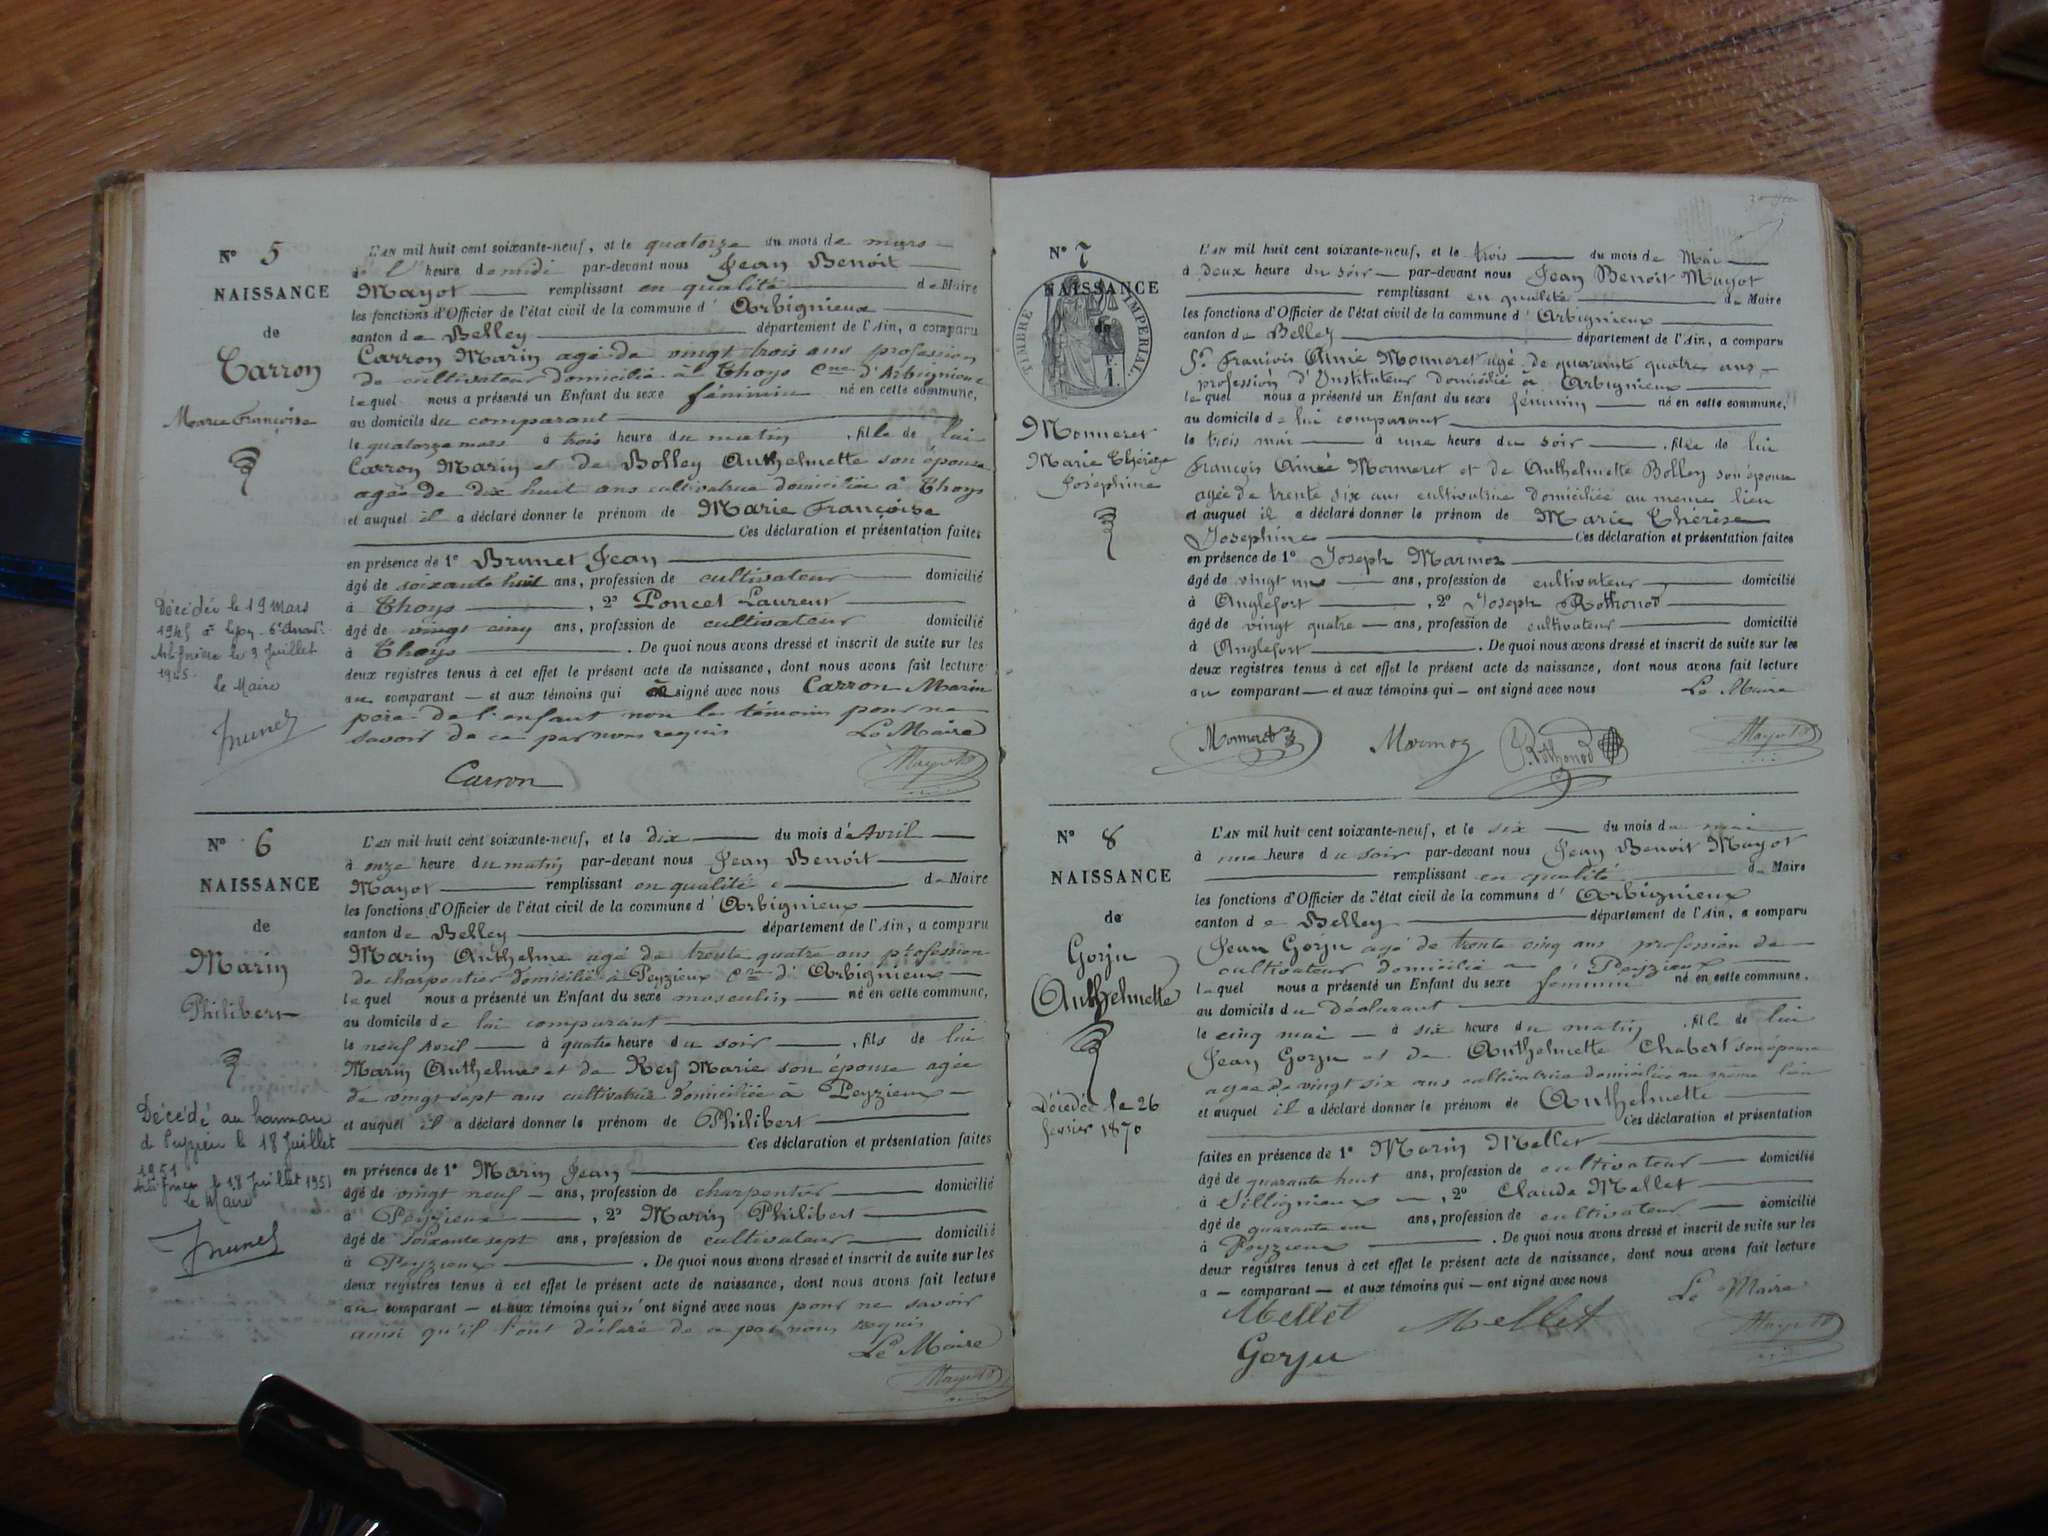 N° 5
NAISSANCE
de
Carron
Marie Françoise
Décédée le 19 Mars
1945 à Lyon - 6e
le 3 Juillet
1945.
Le Maire
L'AN mil huit cent soixante-neuf, et le quatorze du mois de mars
à l' heure de midi par-devant nous Jean Benoit
Mayot remplissant en qualité de Maire
les fonctions d'Officier de l'état civil de la commune d' Arbignieux
canton de Belley département de l'Ain, a comparu
Carron Marin agé de vingt trois ans profession
de cultivateur domicilié à Thoys Cne d'Arbignieux
lequel nous a présenté un Enfant du sexe féminin né en cette commune,
au domicile du comparant
le quatorze mars à trois heure du matin , fille de lui
Carron Marin et de Bolley Anthelmette son épouse
agée de dix huit ans cultivatrice domiciliée à Thoys
et auquel il a déclaré donner le prénom de Marie Françoise
Ces déclaration et présentation faites
en présence de 1° Brunet Jean
âgé de soixante huit ans, profession de cultivateur domicilié
à Thoys , 2° Poncet Laurent
âgé de vingt cinq ans, profession de cultivateur domicilié
à Thoys . De quoi nous avons dressé et inscrit de suite sur les
deux registres tenus à cet effet le présent acte de naissance, dont nous avons fait lecture
au comparant — et aux témoins qui signé avec nous Carron Marin
père de l'enfant non les témoins pour ne
savoir de ce par nous requis Le Maire
Carron
Mayot
N° 6
NAISSANCE
de
Marin
Philibert
Décédé au hameau
de Peyzieu le 18 Juillet
1951
le 18 Juillet 1951
Le Maire
L'AN mil huit cent soixante-neuf, et le dix du mois d'Avril
à onze heure du matin par-devant nous Jean Benoit
Mayot remplissant en qualité de Maire
les fonctions d'Officier de l'état civil de la commune d' Arbignieux
canton de Belley département de l'Ain, a comparu
Marin Anthelme agé de trente quatre ans profession
de charpentier domicilié à Peyzieux Cne d'Arbignieux
lequel nous a présenté un Enfant du sexe masculin né en cette commune,
au domicile de lui comparant
le neuf Avril à quatre heure du soir , fils de lui
Marin Anthelme et de Rey Marie son épouse agée
de vingt sept ans cultivatrice domiciliée à Peyzieux
et auquel il a déclaré donner le prénom de Philibert
Ces déclaration et présentation faites
en présence de 1° Marin Jean
âgé de vingt neuf ans, profession de charpentier domicilié
à Peyzieux , 2° Marin Philibert
âgé de soixante sept ans, profession de cultivateur domicilié
à Peyzieux . De quoi nous avons dressé et inscrit de suite sur les
deux registres tenus à cet effet le présent acte de naissance, dont nous avons fait lecture
au comparant — et aux témoins qui n'ont signé avec nous pour ne savoir
ainsi qu'il l'ont déclaré de ce par nous requis
Le Maire
Mayot
N° 7
NAISSANCE
TIMBRE IMPERIAL
Monneret
Marie Thérèze
Josephine
L'AN mil huit cent soixante-neuf, et le trois du mois de Mai
à deux heure du soir par-devant nous Jean Benoit Mayot
remplissant en qualité de Maire
les fonctions d'Officier de l'état civil de la commune d' Arbignieux
canton de Belley département de l'Ain, a comparu
Sr François Aimé Monneret agé de quarante quatre ans
profession d'Instituteur domicilié à Arbignieux
lequel nous a présenté un Enfant du sexe féminin né en cette commune,
au domicile de lui comparant
le trois mai à une heure du soir , fille de lui
François Aimée Monneret et de Anthelmette Bolley son épouse
agée de trente six ans cultivatrice domiciliée au meme lieu
et auquel il a déclaré donner le prénom de Marie Thérèse
Josephine Ces déclaration et présentation faites
en présence de 1° Joseph Marmoz
âgé de vingt ans, profession de cultivateur domicilié
à Anglefort , 2° Joseph Rothonod
âgé de vingt quatre ans, profession de cultivateur domicilié
à Anglefort . De quoi nous avons dressé et inscrit de suite sur les
deux registres tenus à cet effet le présent acte de naissance, dont nous avons fait lecture
au comparant — et aux témoins qui — ont signé avec nous Le Maire
Monneret Marmoz J. Rothonod Mayot
N° 8
NAISSANCE
de
Gorju
Anthelmette
Décédée le 26
fevrier 1870
L'AN mil huit cent soixante-neuf, et le six du mois de mai
à une heure du soir par-devant nous Jean Benoit Mayot
remplissant en qualité de Maire
les fonctions d'Officier de l'état civil de la commune d' Arbignieux
canton de Belley département de l'Ain, a comparu
Jean Gorju agé de trente cinq ans profession de
cultivateur domicilié a Peyzieux
lequel nous a présenté un Enfant du sexe féminin né en cette commune,
au domicile du déclarant
le cinq mai — à six heure du matin , fille de lui
Jean Gorju et de Anthelmette Chabert son épouse
agee de vingt six ans cultivatrice domiciliée au même lieu
et auquel il a déclaré donner le prénom de Anthelmette
Ces déclaration et présentation
faites en présence de 1° Marin Mellet
âgé de quarante huit ans, profession de cultivateur domicilié
à Sillignieux , 2° Claude Mellet
âgé de quarante un ans, profession de cultivateur domicilié
à Peyzieux . De quoi nous avons dressé et inscrit de suite sur les
deux registres tenus à cet effet le présent acte de naissance, dont nous avons fait lecture
a — comparant — et aux témoins qui — ont signé avec nous Le Maire
Mellet Mellet Mayot
Gorju